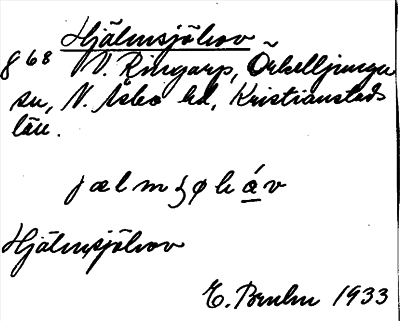 Hjälmsjöhov
868 V. Ringarp, Örkelljunga
sn, N. Åsbo hd, Kristianstads
län.
jælmʒøháv
Hjälmsjöhov
E. Bruhn 1933